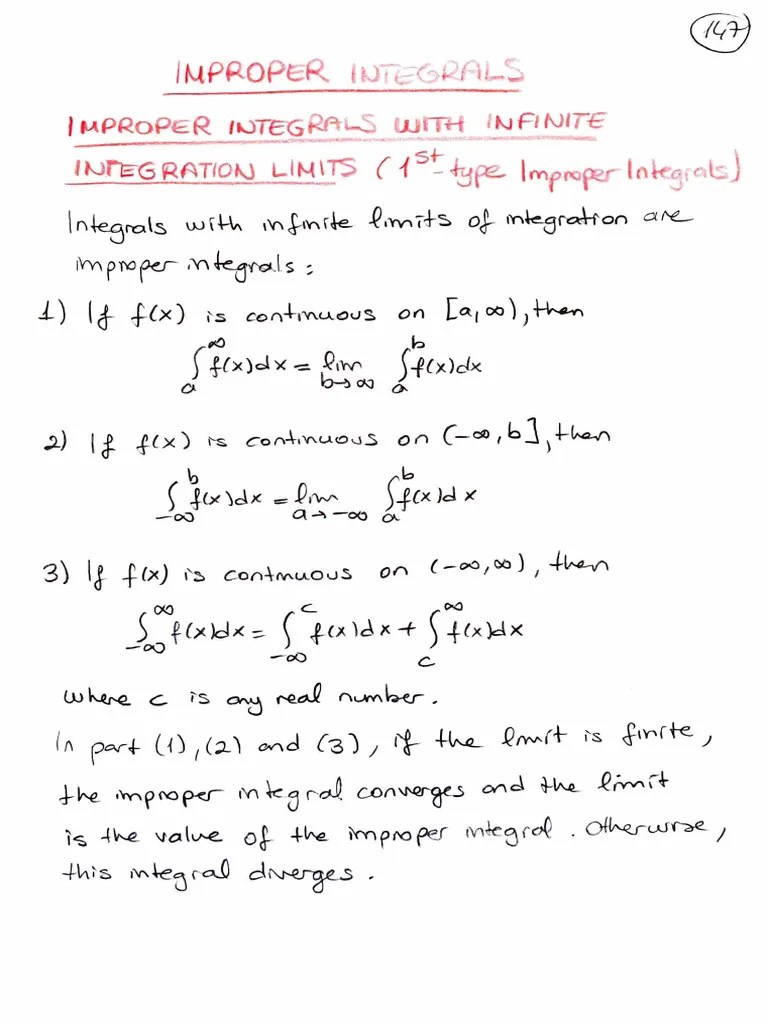 147
IMPROPER INTEGRALS
IMPROPER INTEGRALS WITH INFINITE
INTEGRATION LIMITS (1st-type Improper Integrals)
Integrals with infinite limits of integration are
improper integrals:
1) If f(x) is continuous on [a,∞), then
∫_a^∞ f(x)dx = lim_{b→∞} ∫_a^b f(x)dx
2) If f(x) is continuous on (-∞,b], then
∫_{-∞}^b f(x)dx = lim_{a→-∞} ∫_a^b f(x)dx
3) If f(x) is continuous on (-∞,∞), then
∫_{-∞}^∞ f(x)dx = ∫_{-∞}^c f(x)dx + ∫_c^∞ f(x)dx
where c is any real number.
In part (1),(2) and (3), if the limit is finite,
the improper integral converges and the limit
is the value of the improper integral. Otherwise,
this integral diverges.